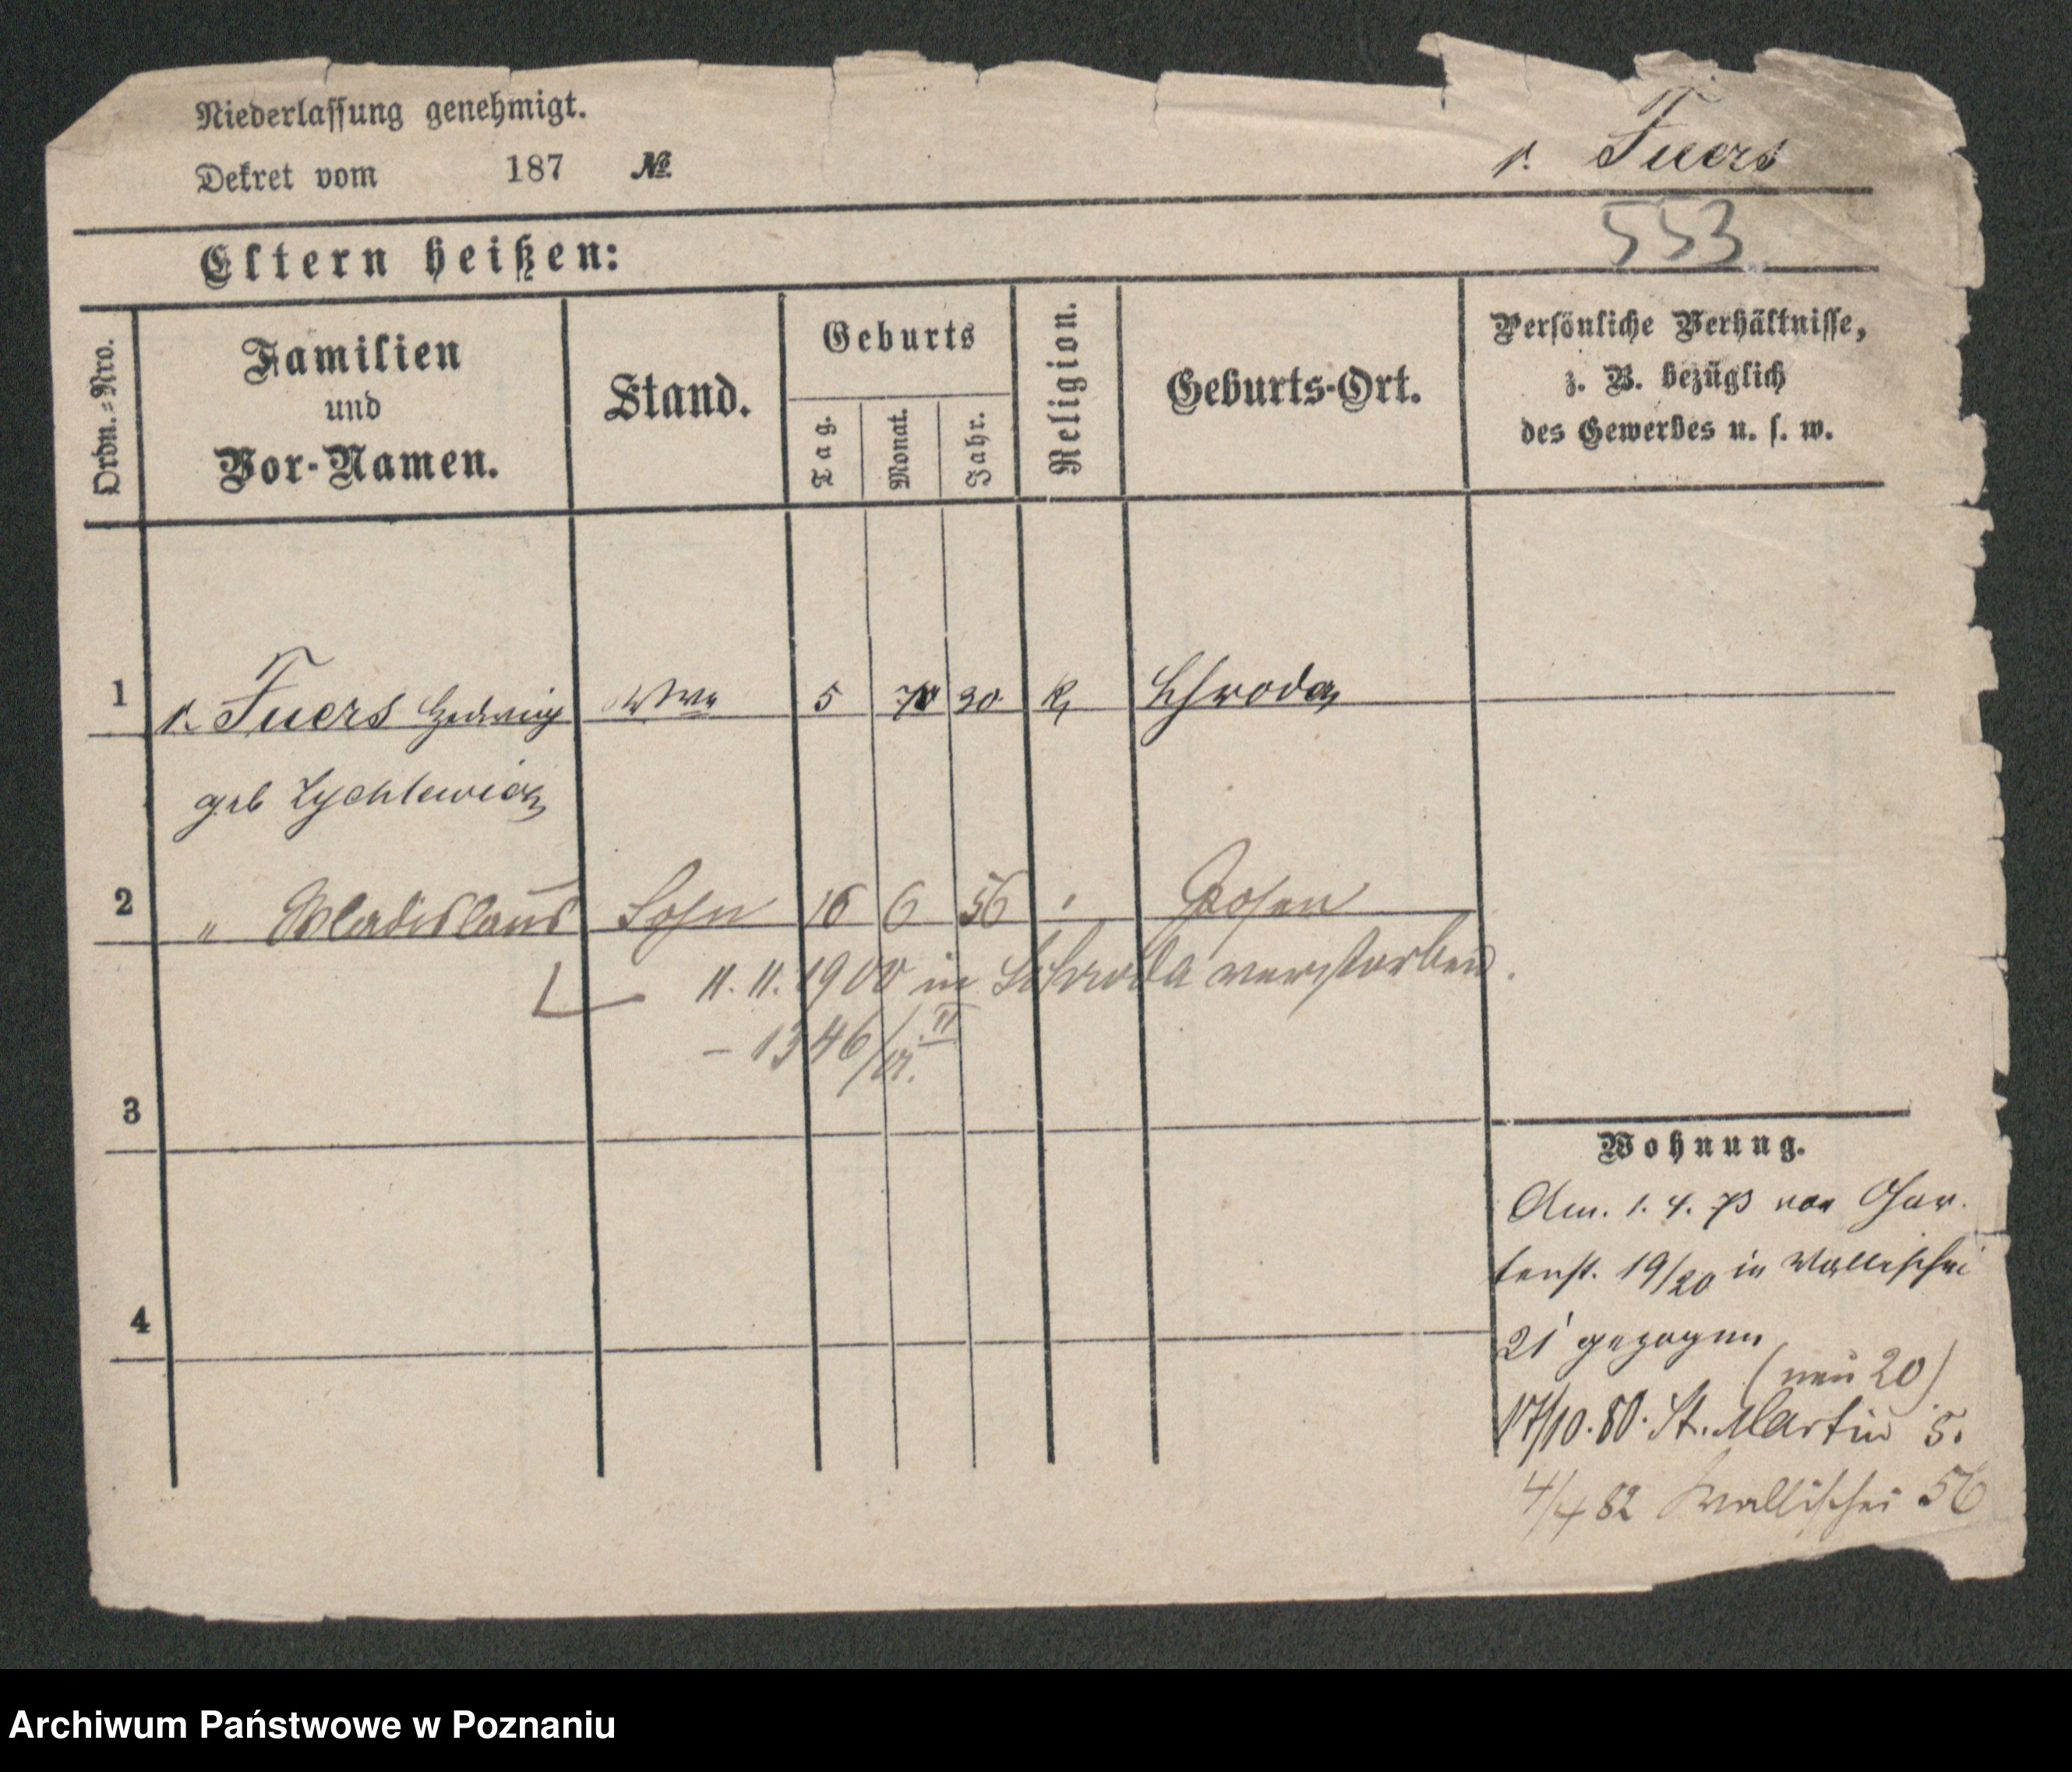 Niederlassung genehmigt.
Dekret vom 187 №
v. Fuers
553
Eltern heißen:
Ordn.=Nro.
Familien
und
Vor-Namen.
Stand.
Geburts
Tag.
Monat.
Jahr.
Religion.
Geburts-Ort.
Persönliche Verhältnisse,
z. B. bezüglich
des Gewerbes u. s. w.
1 v. Fuers Hedwig Wwe 5 30 K Schroda
geb Zychlewicz
2 " Wladislaus Sohn 16 6 56 " Posen
11. 11. 1900 in Schroda verstorben.
- 1346/
3
Wohnung.
Am. 1. 4. 73 von Gar-
tenst. 19/20 in Wallischei
21 gezogen
(neu 20)
4
17/10. 80. St. Martin 5.
4/4 82 Wallischei 56
Archiwum Państwowe w Poznaniu